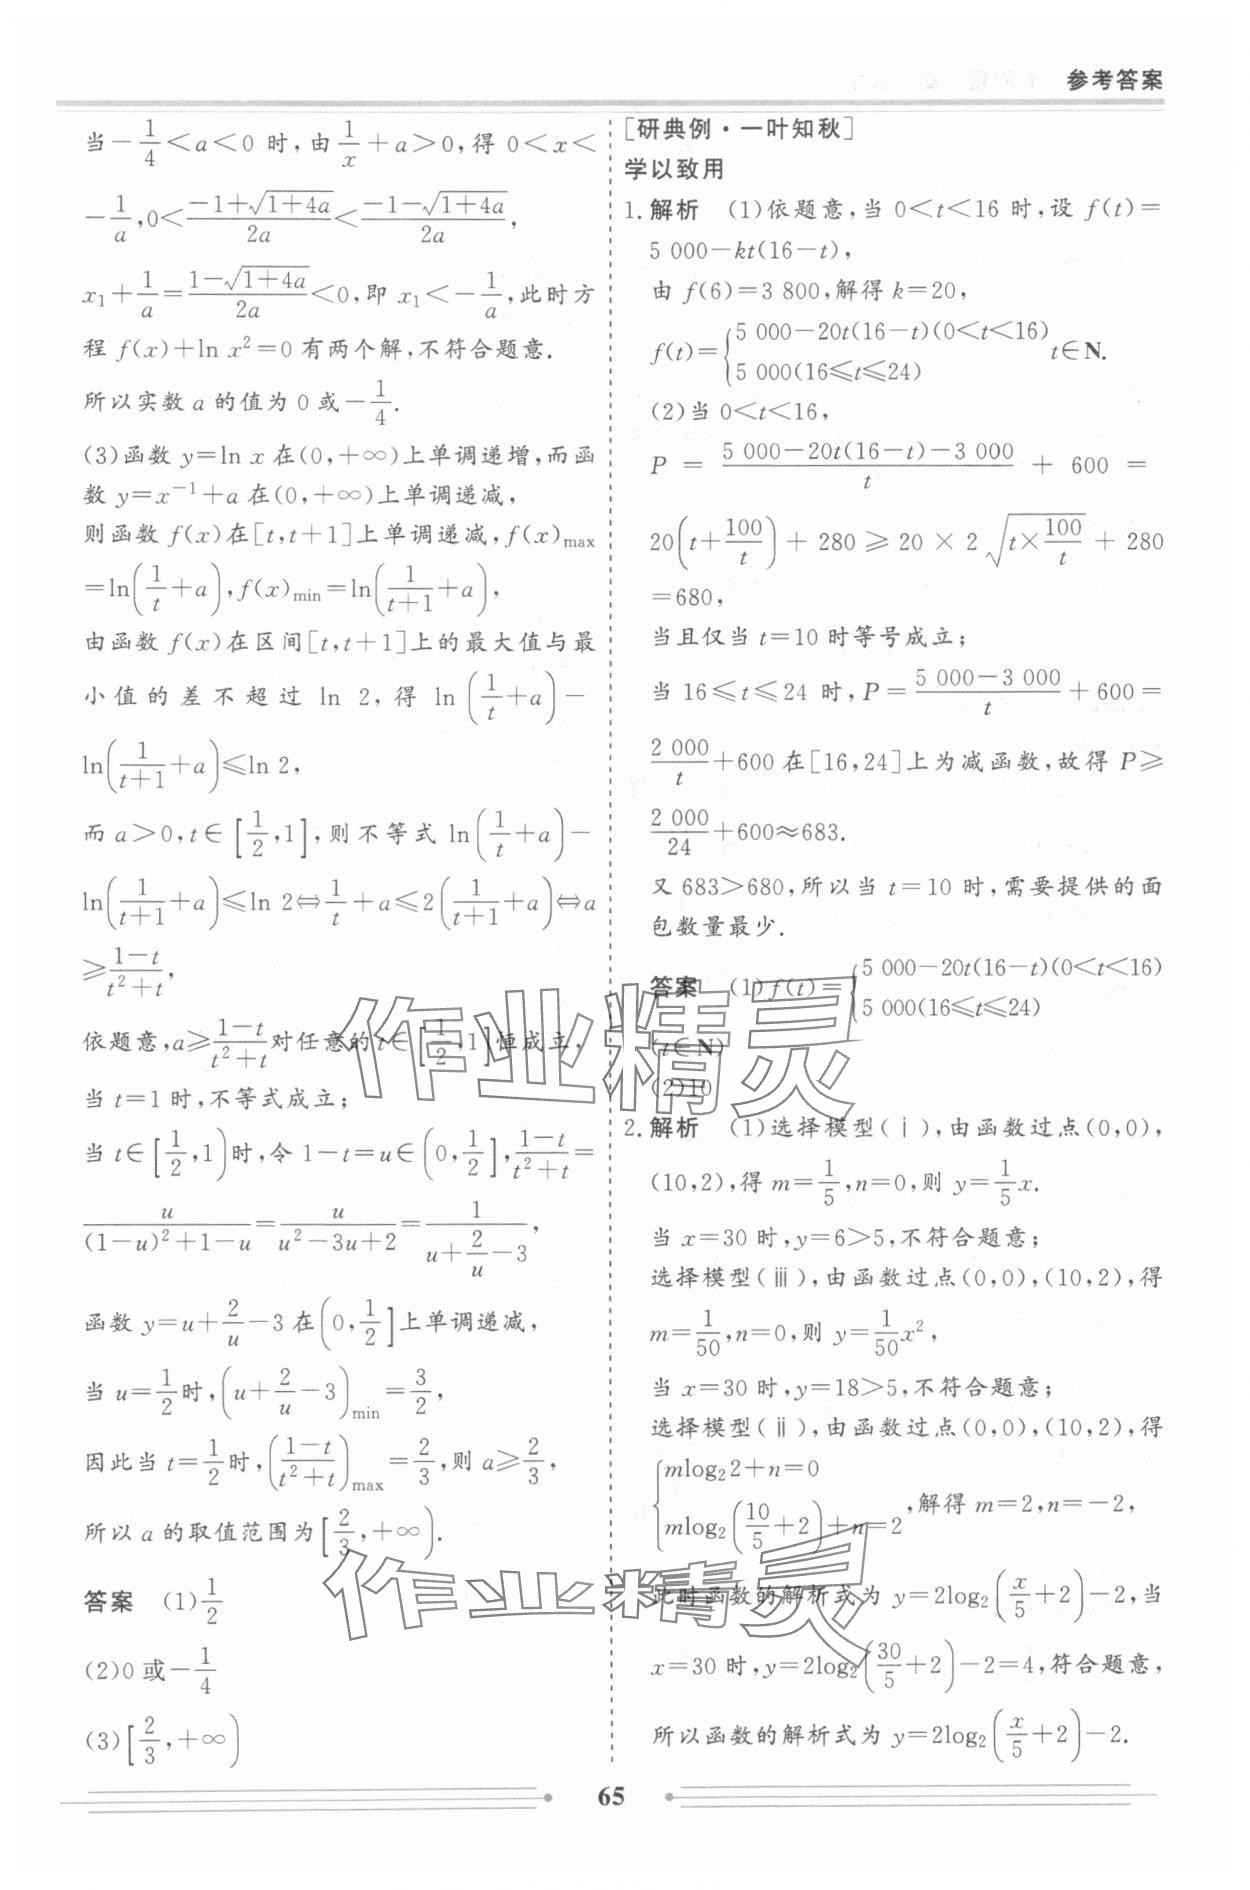 参考答案
当－1/4＜a＜0 时,由1/x＋a＞0,得 0＜x＜
－1/a,0＜(－1＋√(1＋4a))/2a＜(－1－√(1＋4a))/2a,
x₁＋1/a＝(1－√(1＋4a))/2a＜0,即 x₁＜－1/a,此时方
程 f(x)＋ln x²＝0 有两个解,不符合题意.
所以实数 a 的值为 0 或－1/4.
(3)函数 y＝ln x 在(0,＋∞)上单调递增,而函
数 y＝x⁻¹＋a 在(0,＋∞)上单调递减,
则函数 f(x)在[t,t＋1]上单调递减,f(x)max
＝ln(1/t＋a),f(x)min＝ln(1/(t＋1)＋a),
由函数 f(x)在区间[t,t＋1]上的最大值与最
小值的差不超过 ln 2,得 ln(1/t＋a)－
ln(1/(t＋1)＋a)≤ln 2,
而 a＞0,t∈[1/2,1],则不等式 ln(1/t＋a)－
ln(1/(t＋1)＋a)≤ln 2⇔1/t＋a≤2(1/(t＋1)＋a)⇔a
≥(1－t)/(t²＋t),
依题意,a≥(1－t)/(t²＋t)对任意的 t∈[1/2,1]恒成立,
当 t＝1 时,不等式成立;
当 t∈[1/2,1)时,令 1－t＝u∈(0,1/2],(1－t)/(t²＋t)＝
u/((1－u)²＋1－u)＝u/(u²－3u＋2)＝1/(u＋2/u－3),
函数 y＝u＋2/u－3 在(0,1/2]上单调递减,
当 u＝1/2时,(u＋2/u－3)min＝3/2,
因此当 t＝1/2时,((1－t)/(t²＋t))max＝2/3,则 a≥2/3,
所以 a 的取值范围为[2/3,＋∞).
答案 (1)1/2
(2)0 或－1/4
(3)[2/3,＋∞)
[研典例·一叶知秋]
学以致用
1. 解析 (1)依题意,当 0＜t＜16 时,设 f(t)＝
5 000－kt(16－t),
由 f(6)＝3 800,解得 k＝20,
f(t)＝{5 000－20t(16－t)(0＜t＜16)
5 000(16≤t≤24) t∈N.
(2)当 0＜t＜16,
P＝(5 000－20t(16－t)－3 000)/t＋600＝
20(t＋100/t)＋280≥20×2√(t×100/t)＋280
＝680,
当且仅当 t＝10 时等号成立;
当 16≤t≤24 时,P＝(5 000－3 000)/t＋600＝
2 000/t＋600 在[16,24]上为减函数,故得 P≥
2 000/24＋600≈683.
又 683＞680,所以当 t＝10 时,需要提供的面
包数量最少.
答案 (1)f(t)＝{5 000－20t(16－t)(0＜t＜16)
5 000(16≤t≤24)
(t∈N)
(2)10
2. 解析 (1)选择模型(ⅰ),由函数过点(0,0),
(10,2),得 m＝1/5,n＝0,则 y＝1/5x.
当 x＝30 时,y＝6＞5,不符合题意;
选择模型(ⅲ),由函数过点(0,0),(10,2),得
m＝1/50,n＝0,则 y＝1/50x²,
当 x＝30 时,y＝18＞5,不符合题意;
选择模型(ⅱ),由函数过点(0,0),(10,2),得
{mlog₂2＋n＝0
mlog₂(10/5＋2)＋n＝2,解得 m＝2,n＝－2,
此时函数的解析式为 y＝2log₂(x/5＋2)－2,当
x＝30 时,y＝2log₂(30/5＋2)－2＝4,符合题意,
所以函数的解析式为 y＝2log₂(x/5＋2)－2.
65
作业精灵
作业精灵